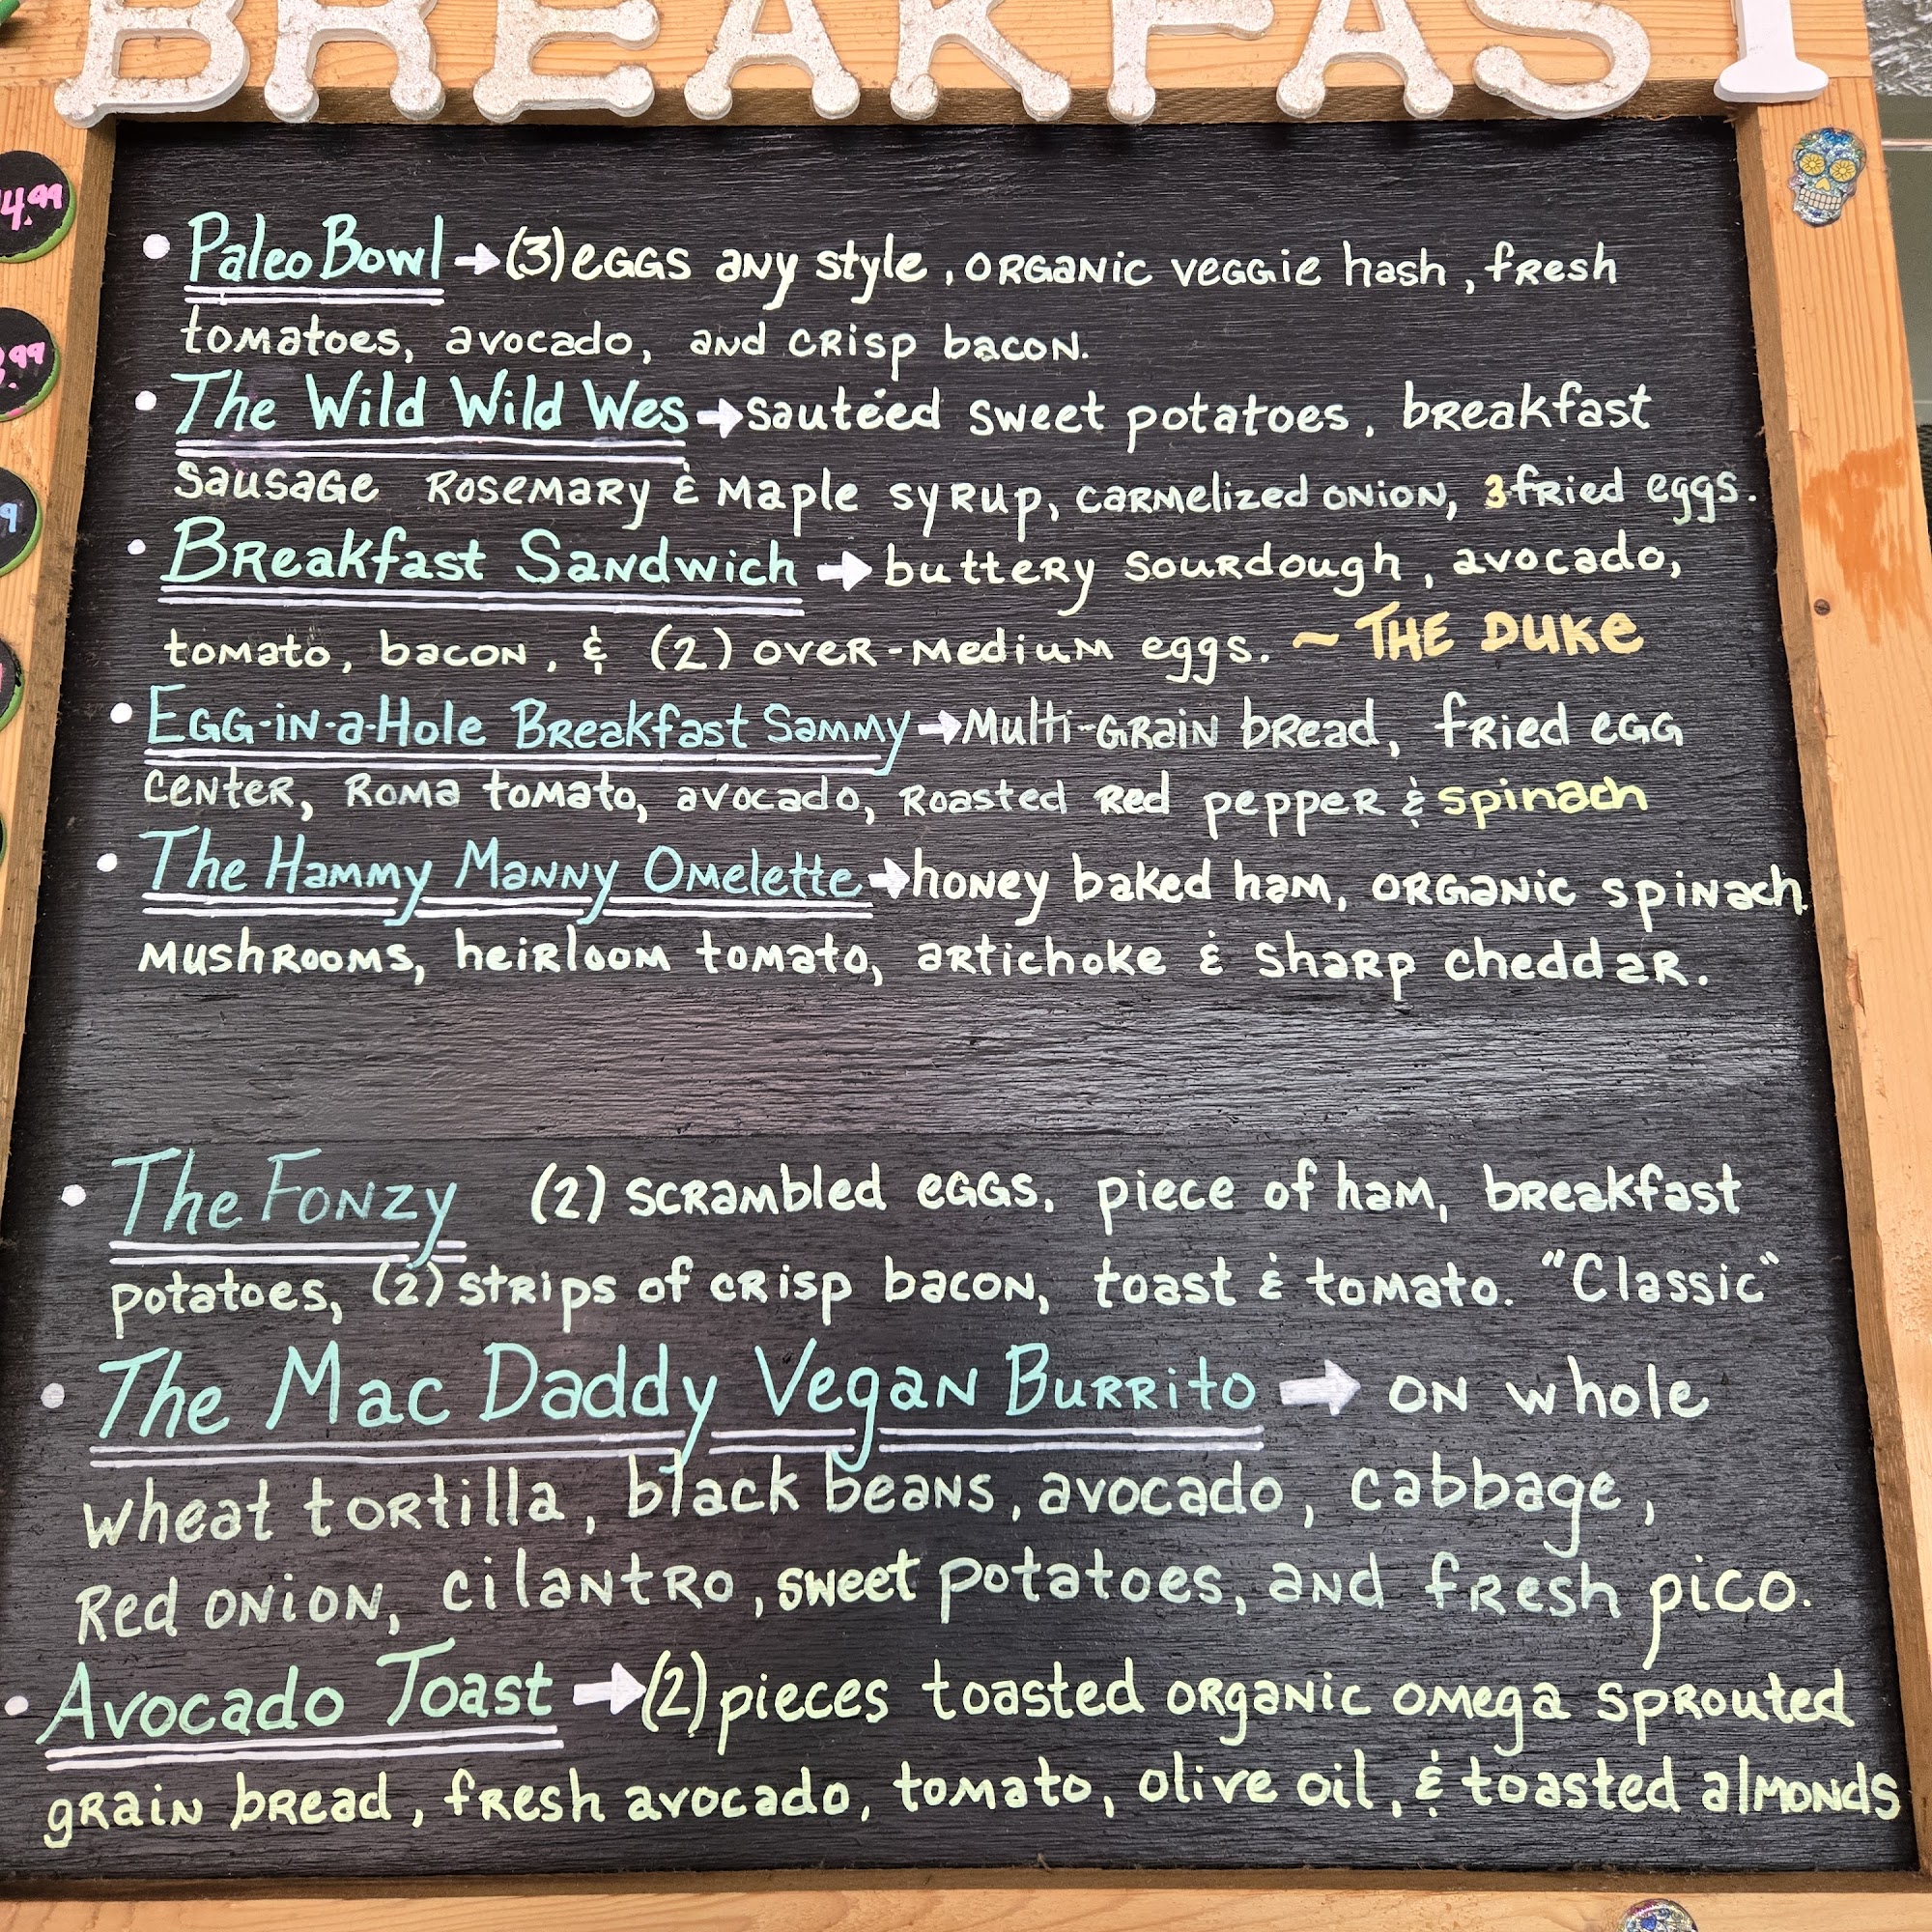 BREAKFAST
4.99
.99
9
• Paleo Bowl → (3) eggs any style, organic veggie hash, fresh
tomatoes, avocado, and crisp bacon.
• The Wild Wild Wes → sautéed sweet potatoes, breakfast
sausage rosemary & maple syrup, carmelized onion, 3 fried eggs.
• Breakfast Sandwich → buttery sourdough, avocado,
tomato, bacon, & (2) over-medium eggs. ~ THE DUKE
• Egg-in-a-Hole Breakfast Sammy → Multi-grain bread, fried egg
center, Roma tomato, avocado, roasted red pepper & spinach
• The Hammy Manny Omelette → honey baked ham, organic spinach
mushrooms, heirloom tomato, artichoke & sharp cheddar.
• The Fonzy (2) scrambled eggs, piece of ham, breakfast
potatoes, (2) strips of crisp bacon, toast & tomato. "Classic"
• The Mac Daddy Vegan Burrito → on whole
wheat tortilla, black beans, avocado, cabbage,
Red onion, cilantro, sweet potatoes, and fresh pico.
• Avocado Toast → (2) pieces toasted organic omega sprouted
grain bread, fresh avocado, tomato, olive oil, & toasted almonds